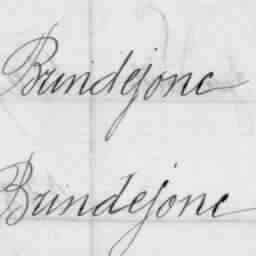 Brindejonc
Brindejonc